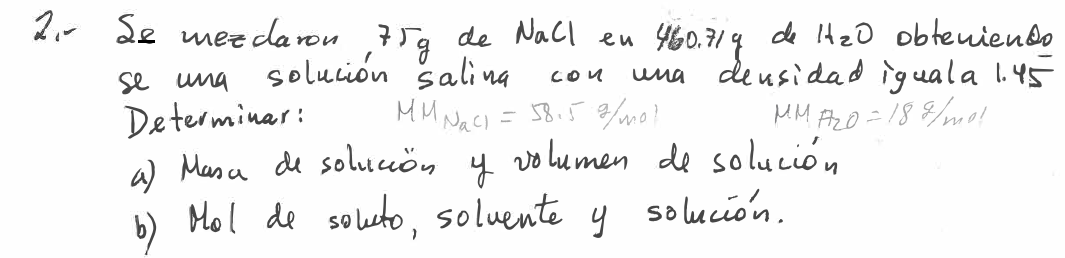 2.- Se mezclaron 75g de NaCl en 460.71g de H2O obteniendo
se una solución salina con una densidad igual a 1.45
Determinar: MM NaCl = 58.5 g/mol MM H2O = 18 g/mol
a) Masa de solución y volumen de solución
b) Mol de soluto, solvente y solución.